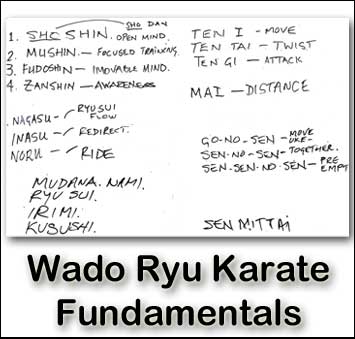 SHO DAN
1. SHO SHIN. OPEN MIND.
2. MUSHIN. — FOCUSED TRAINING.
3. FUDOSHIN — IMOVABLE MIND.
4. ZANSHIN — AWARENESS
NAGASU - RYUSUI
FLOW
INASU - REDIRECT.
NORU - RIDE
MUDANA. NAMI.
RYU SUI.
IRIMI.
KUSUSHI.
TEN I - MOVE
TEN TAI - TWIST
TEN GI - ATTACK
MAI - DISTANCE
GO-NO-SEN - MOVE
UKE-
SEN-NO-SEN - TOGETHER.
SEN-SEN-NO SEN - PRE
EMPT
SEN MITTAI
Wado Ryu Karate
Fundamentals